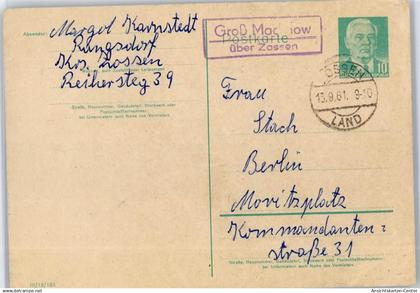 Absender: Margot Karpstedt
Rangsdorf
Krs. Zossen
Reihersteg 39
Straße, Hausnummer, Gebäudeteil, Stockwerk oder
Postschließfachnummer;
bei Untermietern auch Name des Vermieters
Groß Machnow
über Zossen
Postkarte
10
ZOSSEN
13.9.61. 9-10
LAND
Frau
Stach
Berlin
Moritzplatz
Kommandanten=
straße 31
Straße, Hausnummer, Gebäudeteil, Stockwerk oder Postschließfachnummer;
bei Untermietern auch Name des Vermieters
III/18/185
Ansichtskarten-Center